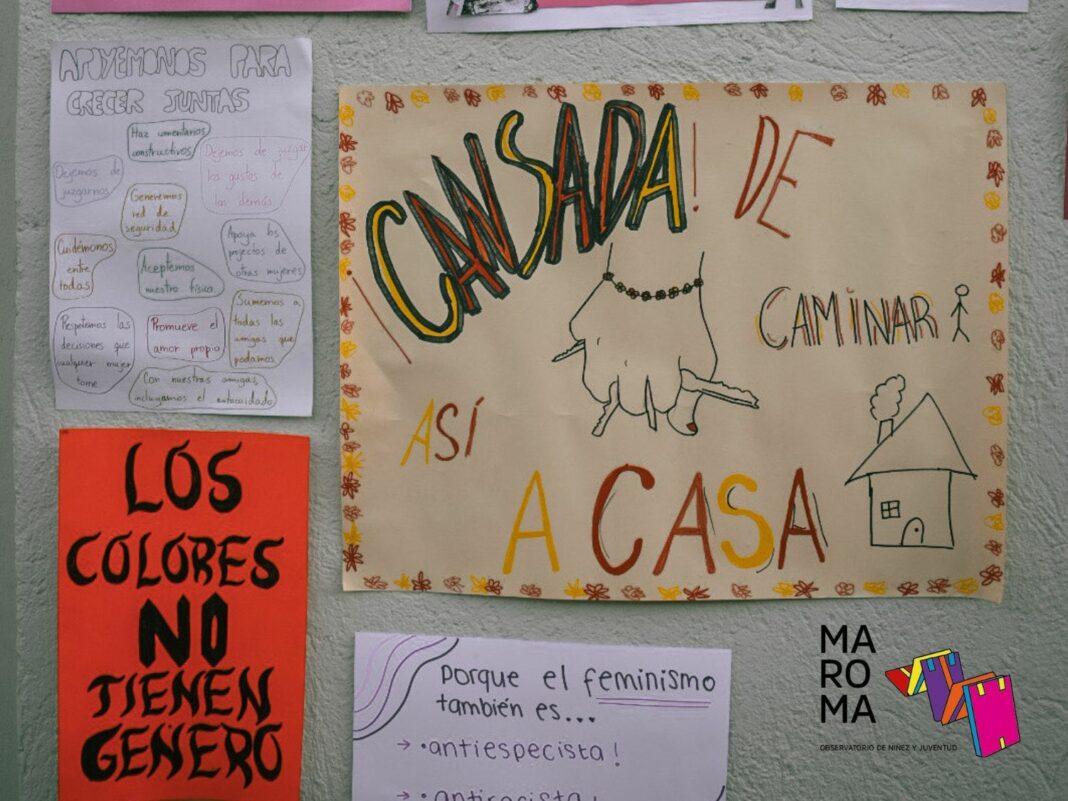 APOYEMONOS PARA
CRECER JUNTAS
Haz comentarios
constructivos
Dejemos de
juzgarnos
Dejemos de juzgar
los gustos de
los demás
Generemos
red de
seguridad
Cuidémonos
entre
todas
Aceptemos
nuestro físico
Apoya los
projectos de
otras mujeres
Respetemos las
decisiones que
cualquier mujer
tome
Promueve el
amor propio
Sumemos a
todas las
amigas que
podamos
Con nuestras amigas,
incluyamos el autocuidado
¡CANSADA! DE
CAMINAR
ASÍ
A CASA
LOS
COLORES
NO
TIENEN
GENERO
Porque el feminismo
también es...
→ • antiespecista!
→ • antiracista!
MA
RO
MA
OBSERVATORIO DE NIÑEZ Y JUVENTUD